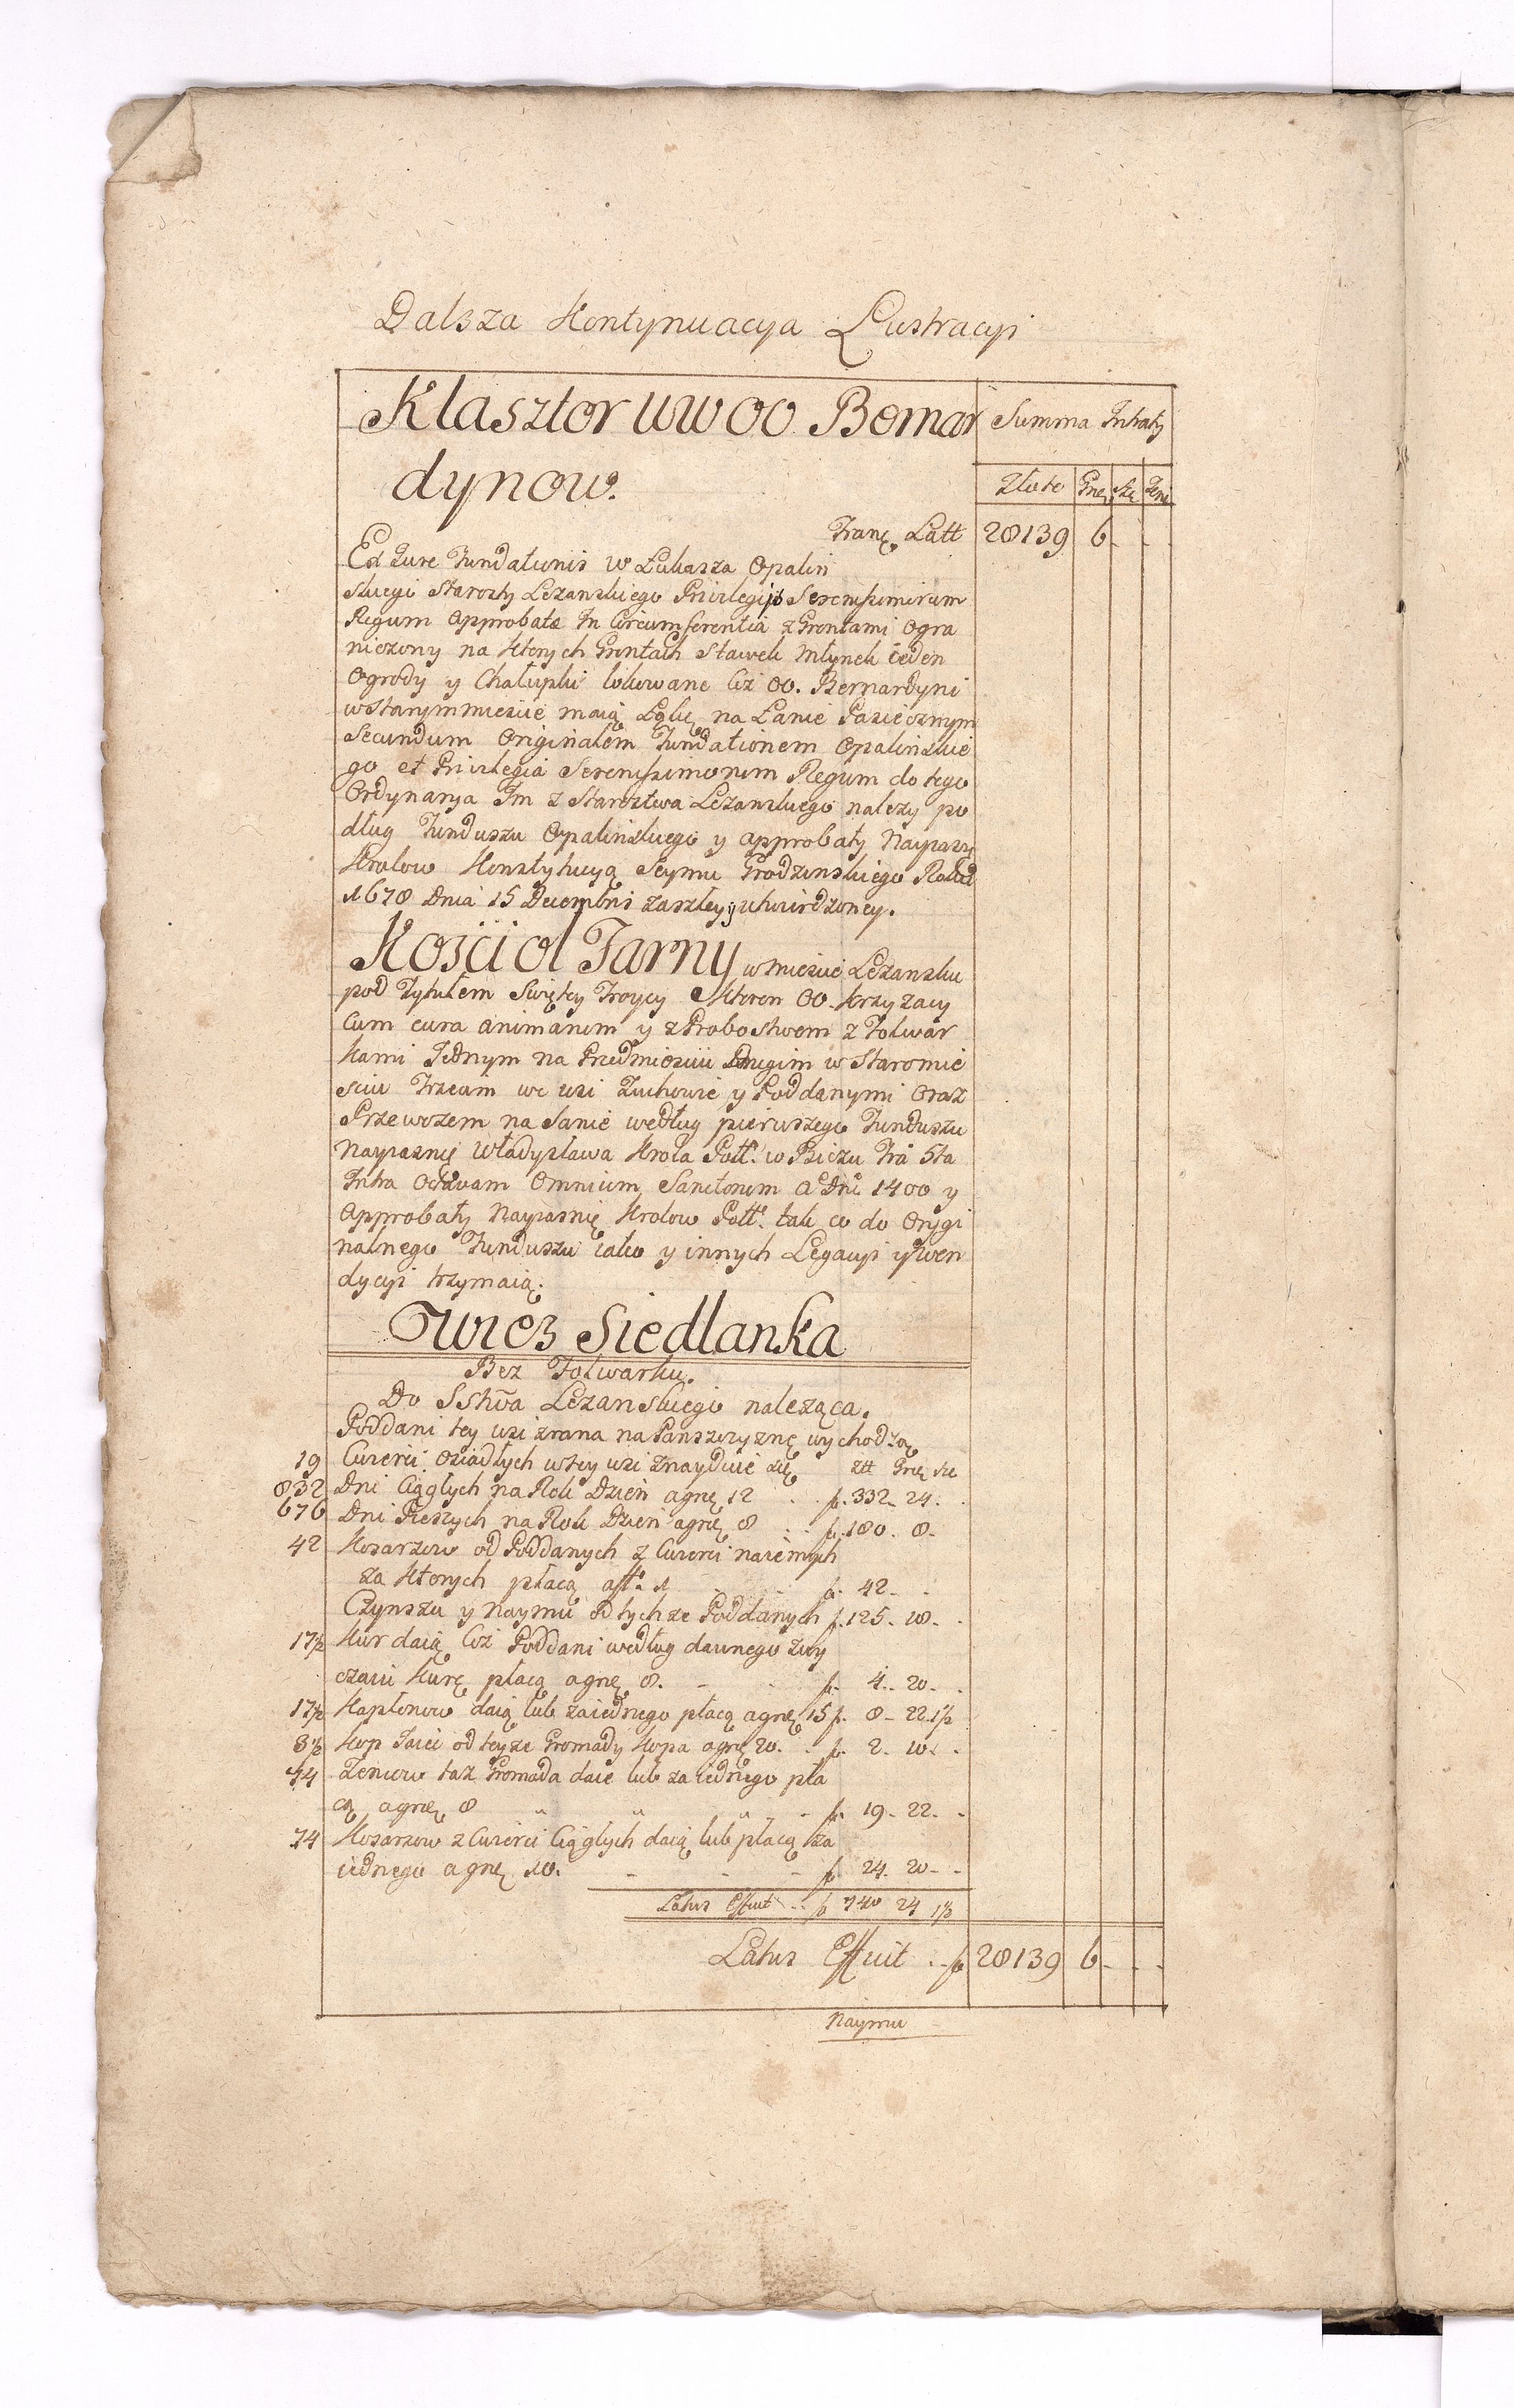 Dalsza Kontynuacya Lustracyi
Klasztor WW OO. Bernar
dynow.
Summa Intraty
Złote Gne Sze Deni
Trans Latt 28139 6 - -
Ex Jure Fundationis W Łukasza Opalin
skiego Starosty Leżanskiego Privilegijs Serenissimorum
Regum Approbata In Circumferentia z Grontami Ogra
niczony na ktorych Grontach Stawek Młynek ieden
Ogrody y Chałupki lokowane Ciż OO. Bernardyni
w Starym miescie maią Łąkę na Łanie Pasiecznym
Secundum Originalem Fundationem Opalinskie
go et Privilegia Serenissimorum Regum do tego
Ordynarya Im z Starostwa Leżanskiego należy po
dług Funduszu Opalinskiego y approbaty Nayiaszię
Krolow Konstytucyą Seymu Grodzenskiego Roku
1678 Dnia 15 Decembris zaszłey y utwirdzoney.
Kościoł Farny w miescie Leżansku
pod Tytułem Swiętey Troycy Ktoren OO. Krzyżacy
Cum cura animarum y z Probostwem z Folwar
kami Jednym na Przedmiesciu Drugim w Staromie
sciu Trzecim we wsi Zuchowie y Poddanymi Oraz
Przewozem na Sanie według pierwszego Funduszu
Nayiasnię Władysława Krola Poll: w Bieczu Fria 5ta
Intra Octavam Omnium Sanctorum A° Dni 1400 y
Approbaty Nayiasnię Krolow Poll: tak co do Orygi
nalnego Funduszu iako y innych Legacyi y wen
dycyi trzymaią.
Wieś Siedlanka
Bez Folwarku.
Do Sstwa Leżanskiego należąca.
Poddani tey wsi zrana na Panszczyznę wychodzą
19 Cwierci osiadłych w tey wsi znayduie się złł Gnę sze
832 Dni Ciągłych na Rok Dzien a gnę 12 . . f. 332. 24. .
676 Dni Pieszych na Rok Dzien a gnę 8 . . f. 180. 8.
42 Kosarzow od Poddanych z Cwierci naiemnych
za ktorych płacą a fł. 1 f. 42. .
Czynszu y Naymu od tychże Poddanych f. 125. 18. .
17½ Kur daią Ciż Poddani według dawnego zwy
czaiu Kurę płacą a gnę 8. - f. 4. 20. .
17½ Kapłonow daią lub za iednego płacą a gnę 15 f. 8. 22. 1½
3½ Kop Jaiec od teyże Gromady Kopa a gnę 20. . f. 2. 10. .
74 Zencow taż Gromada daie lub za iednego pła
cą a gnę 8 " " " - f. 19. 22. .
74 Kosarzow z Cwierci Ciągłych daią lub płacą za
iednego a gnę 10. - - - f. 24. 20. .
Latus Effuit .. f 740 24 1½
Latus Effuit .. f 28139 6 - -
Naymu